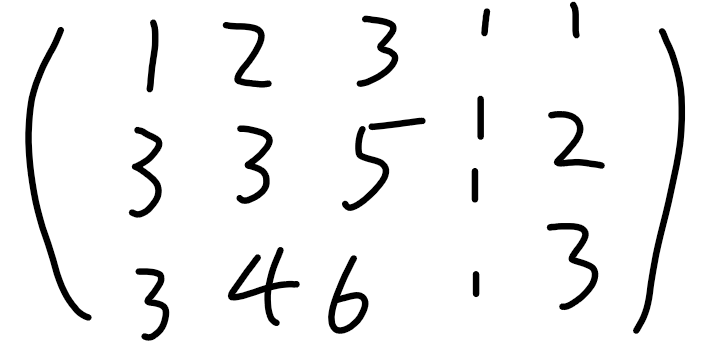 ( 1 2 3 ¦ 1
3 3 5 ¦ 2
3 4 6 ¦ 3 )